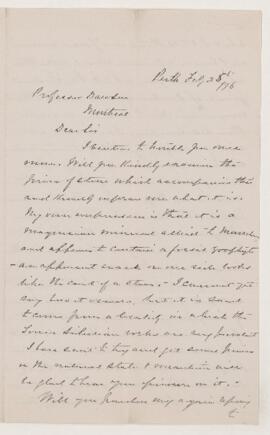 Perth Feby 28th /96
Professor Dawson
Montreal
Dear Sir
I venture to trouble you once
more. Will you kindly examine the
piece of stone which accompanies this
and kindly inform me what it is.
My own impression is that it is a
magnesian mineral allied to
and appears to contain a fossil
- an apparent crack on one side looks
like the end of a stem. - I cannot get
any but it is said
to come from a locality in which the
Lower Silurian rocks are
I have sent to try and get some pieces
in the natural state & will
be glad to have your opinion on it. -
Will you pardon my again
to